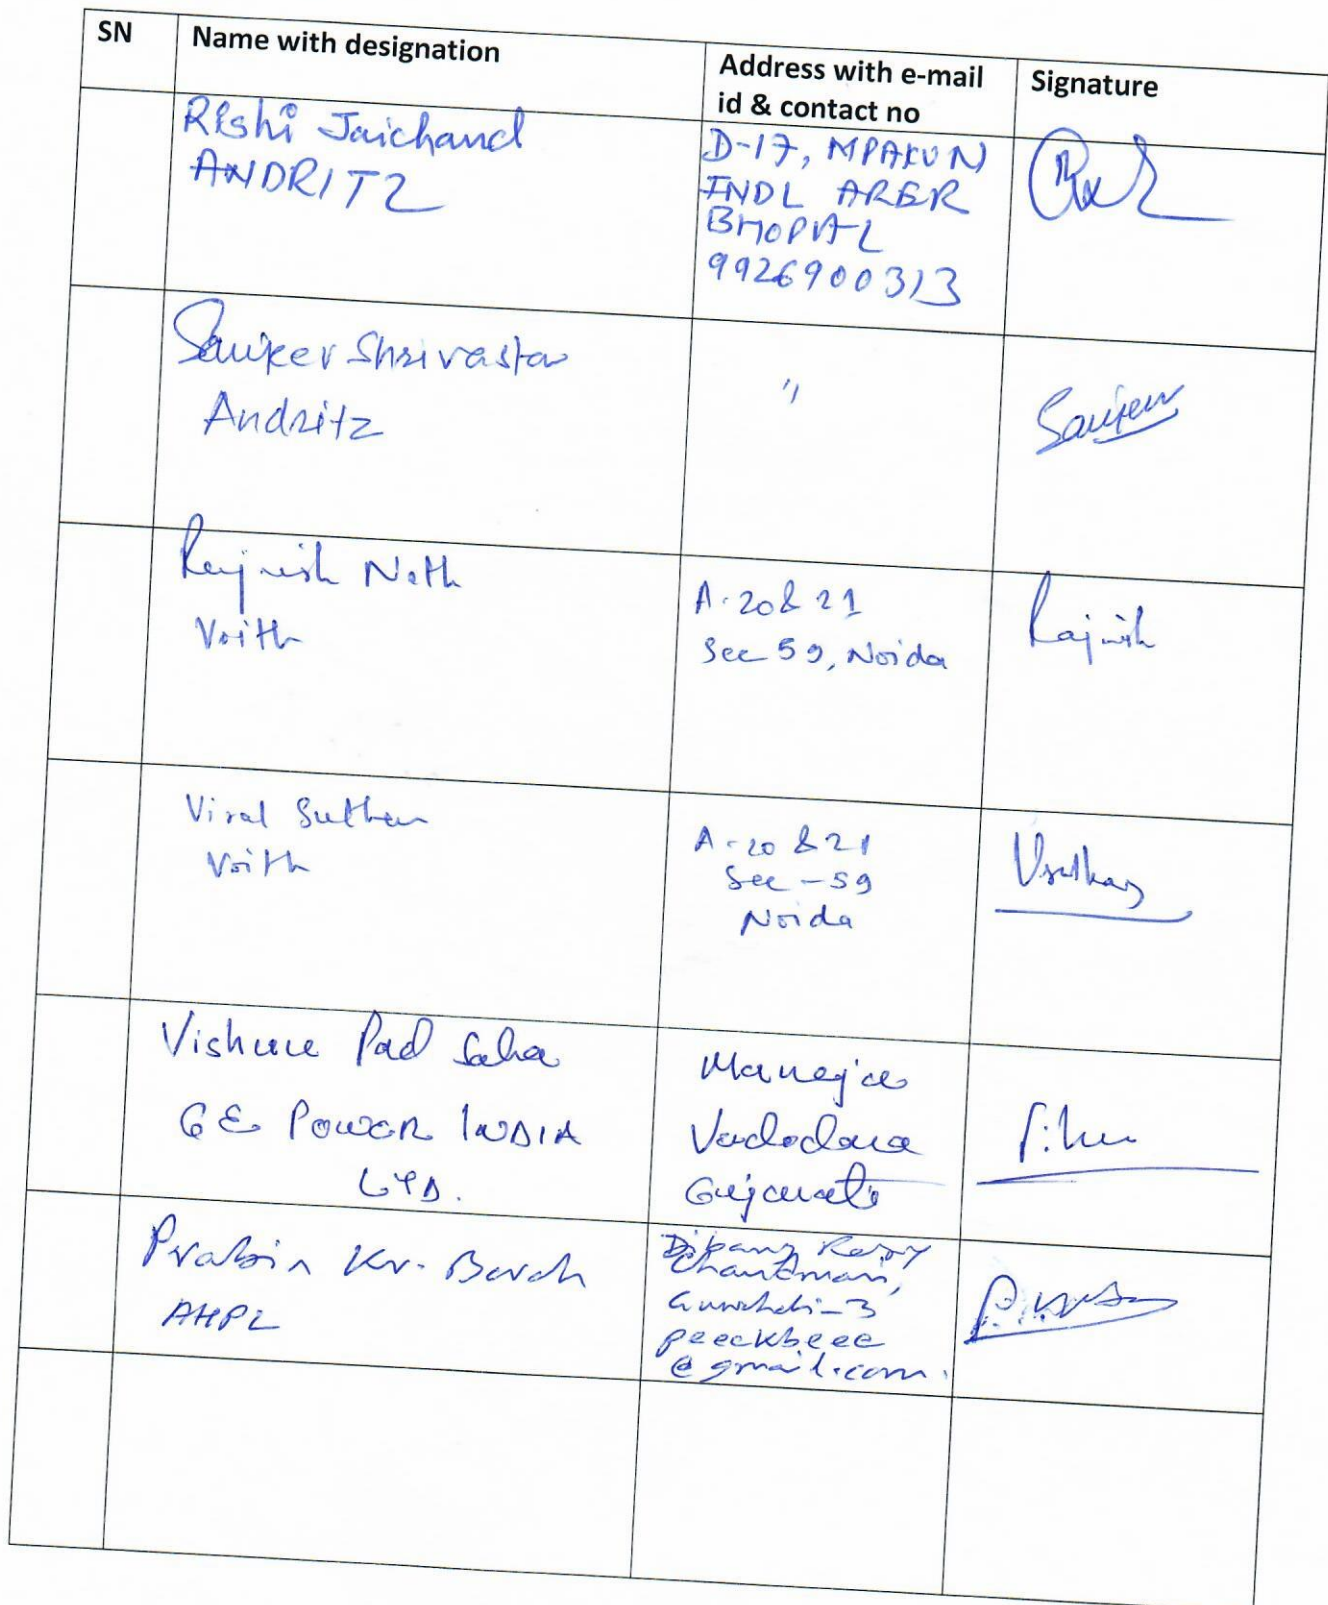 SN Name with designation Address with e-mail id & contact no Signature
Rishi Jaichand
ANDRITZ
D-17, MPAKUN
INDL AREA
BHOPAL
9926900313
Sanjeev Shrivastav
Andritz
"
Sanjeev
Rajnish Nath
Voith
A-20 & 21
Sec 59, Noida
Rajnish
Viral Suthar
Voith
A-20 & 21
Sec-59
Noida
VSuthar
Vishnu Pad Saha
GE POWER INDIA
LTD.
Maneja
Vadodara
Gujarat
Prabin Kr. Borah
AHPL
Chandmari,
Guwahati-3
@gmail.com.